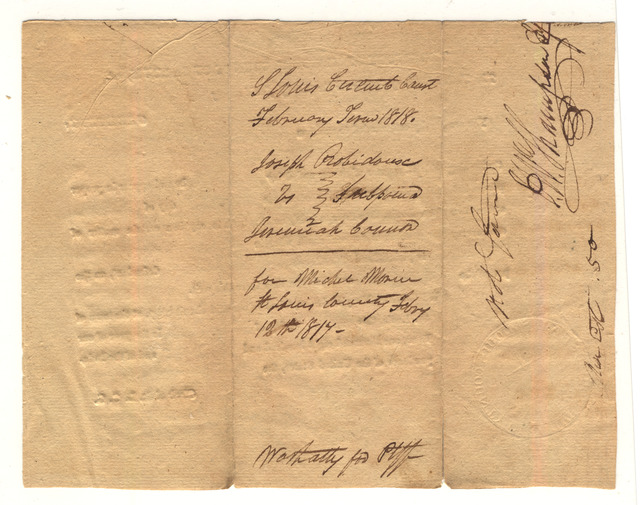 St Louis Circuit Court
February Term 1818.
Joseph Robidoux
vs Subpoena
Jeremiah Connor
for Michel Morin
St Louis County Feby
12th 1817-
atty for Ptff
Not found
50